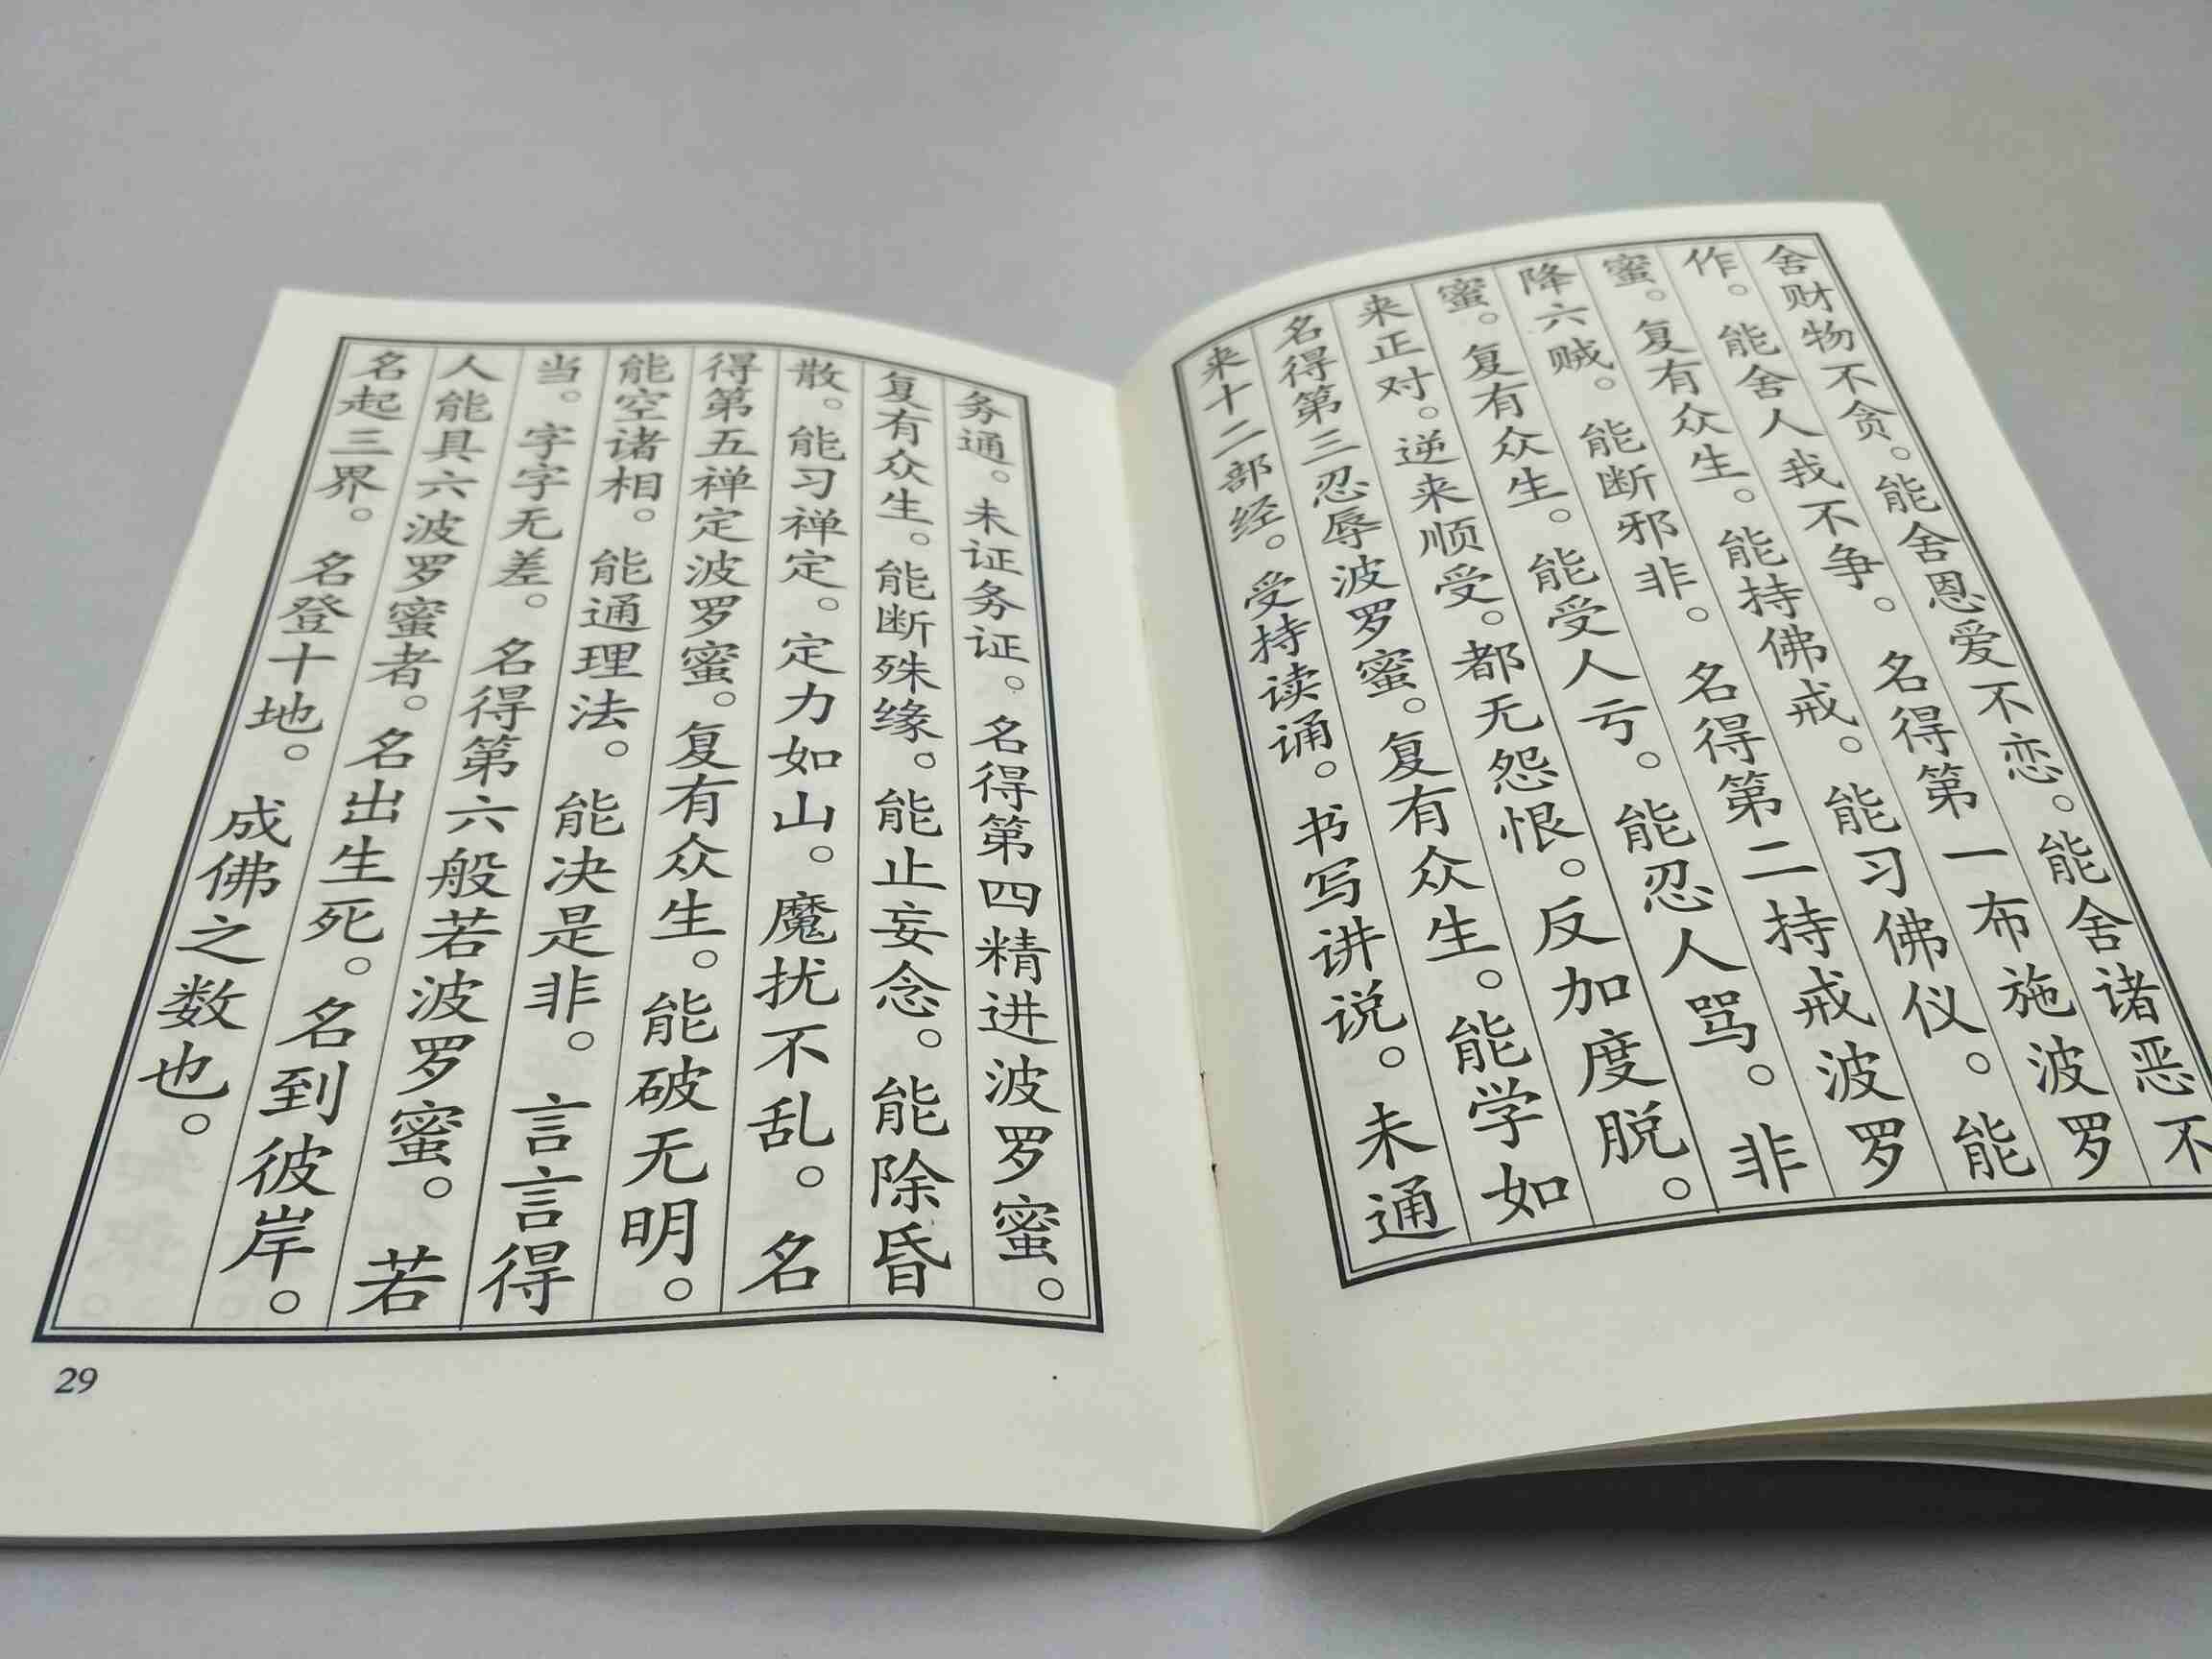 舍财物不贪。能舍恩爱不恋。能舍诸恶不
作。能舍人我不争。名得第一布施波罗
蜜。复有众生。能持佛戒。能习佛仪。能
降六贼。能断邪非。名得第二持戒波罗
蜜。复有众生。能受人亏。能忍人骂。非
来正对。逆来顺受。都无怨恨。反加度脱。
名得第三忍辱波罗蜜。复有众生。能学如
来十二部经。受持读诵。书写讲说。未通
务通。未证务证。名得第四精进波罗蜜。
复有众生。能断殊缘。能止妄念。能除昏
散。能习禅定。定力如山。魔扰不乱。名
得第五禅定波罗蜜。复有众生。能破无明。
能空诸相。能通理法。能决是非。言言得
当。字字无差。名得第六般若波罗蜜。若
人能具六波罗蜜者。名出生死。名到彼岸。
名起三界。名登十地。成佛之数也。
29